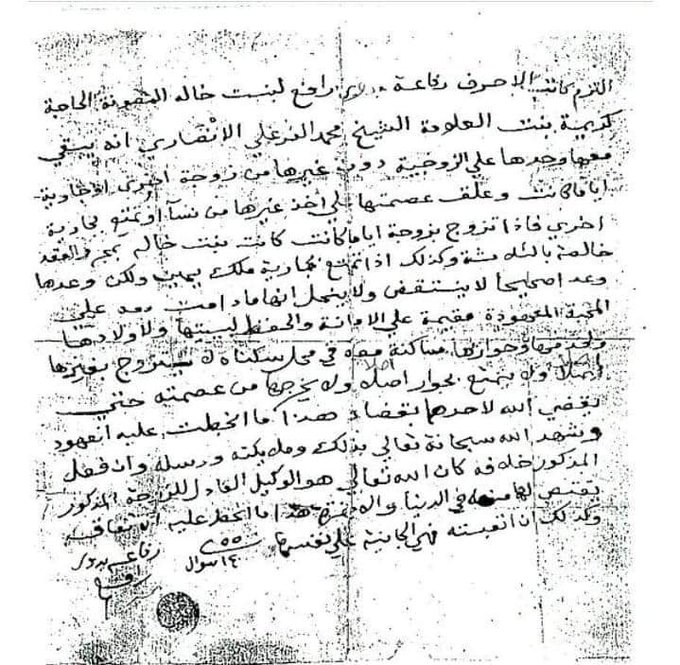 التزم كاتب الاحرف رفاعة بدوي رافع لبنت خاله المصونة الحاجة
كريمة بنت العلامة الشيخ محمد الفرغلي الانصاري انه يبقي
معها وحدها علي الزوجية دون غيرها من زوجة اخري او جارية
اياما كانت وعلق عصمتها علي اخذ غيرها من نسآ او تمتع بجارية
اخري فاذا تزوج بزوجة اياما كانت كانت بنت خاله بمجرد العقد
خالصة بالثلاثة وكذلك اذا تمتع بجارية ملك يمين ولكن وعدها
وعدا صحيحا لا ينتقض ولا ينحل انها ما دامت معه علي
المحبة المعهودة مقيمة علي الامانة والحفظ لبيتها ولاولادها
ولخدمها وجوارها ساكنة معه في محل سكناه لا يتزوج بغيرها
اصلا ولا يتمتع بجوار اصلا ولا يخرجها من عصمته حتي
يقضي الله لاحدهما بقضاه هذا ما انجعلت عليه العهود
وشهد الله سبحانه تعالي بذلك وملايكته ورسله وان فعل
المذكور خلافه كان الله تعالي هو الوكيل العادل للزوجة المذكور
يقتص لها منه في الدنيا والاخرة هذا ما انجعل عليه الاتفاق
وكذلك ان اتعبته فهي الجانية علي نفسها
رفاعه بدوي
رافع
١٤ شوال ٥٥